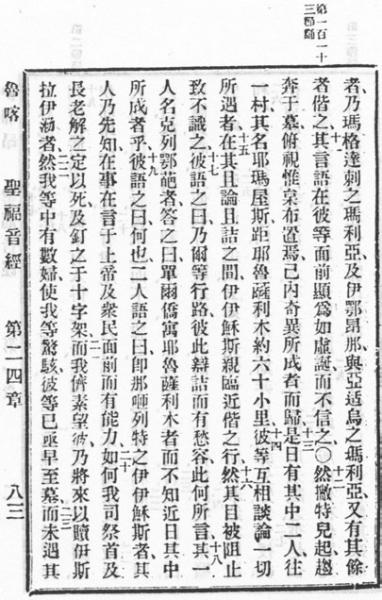 第一百一十
三節誦
者乃瑪格達剌之瑪利亞及伊鄂昂那與亞适烏之瑪利亞又有其餘
者偕之十一其言語在彼等面前顯爲如虛誕而不信之○十二然撇特兒起趨
奔于墓俯視惟枲布置焉己內奇異所成者而歸十三是日有其中二人往
一村其名耶瑪屋斯距耶魯薩利木約六十小里十四彼等互相談論一切
所遇者十五在其且論且詰之間伊伊穌斯親臨近偕之行十六然其目被阻止
致不識之十七彼語之曰乃爾等行路彼此辯詰而有愁容此何所言十八其一
人名克列鄂葩者答之曰單爾僑寓耶魯薩利木者而不知近日其中
所成者乎十九彼語之曰何也二人語之曰卽那咂列特之伊伊穌斯者其
人乃先知在事在言于上帝及衆民面前而有能力二十如何我司祭首及
長老解之定以死及釘之于十字架二一而我儕素望彼乃將來以贖伊斯
拉伊泐者二二然我等中有數婦使我等驚駭彼等已亟早至墓二三而未遇其
魯喀 聖福音經 第二四章 八三